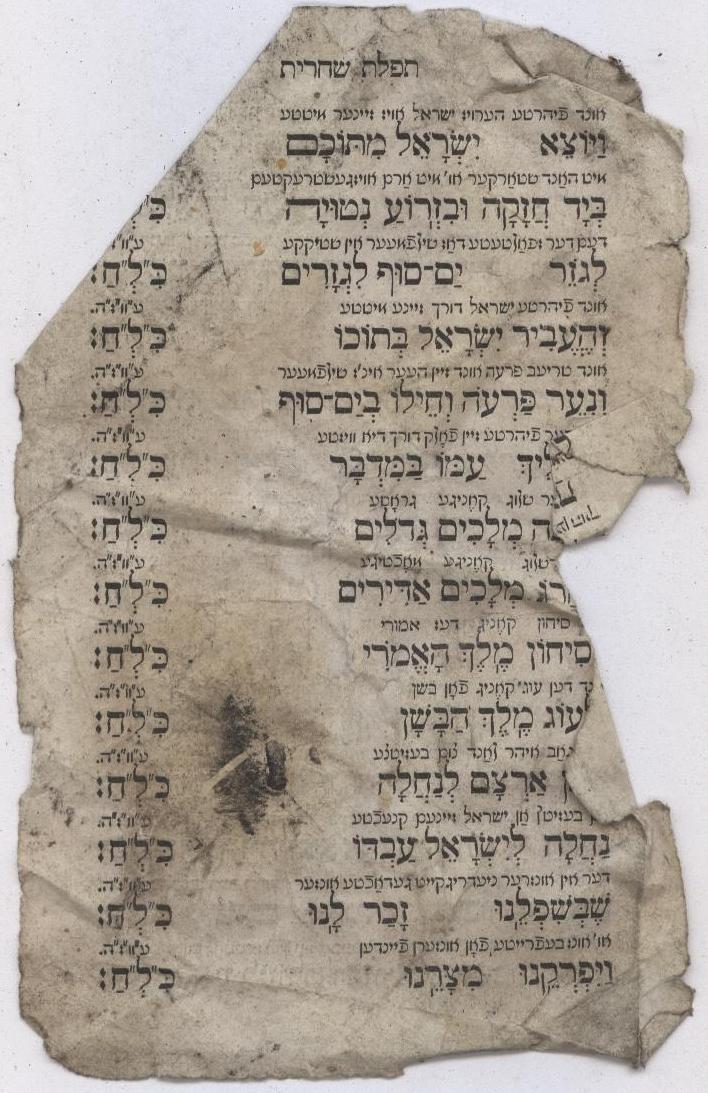 תפלת שחרית
אונד פֿיהרטע הערויז ישראל אויז זיינער מיטטע
וַיּוֹצֵא יִשְׂרָאֵל מִתּוֹכָם
מיט האנד שטארקער או' מיט ארם אויזגעשטרעקטעם
בְּיָד חֲזָקָה וּבִזְרוֹעַ נְטוּיָה כִּ
דעם דער שפאלטעטע דאז שילפֿמעער אין שטיקקע ע״וו
לְגֹזֵר יַם־סוּף לִגְזָרִים כִּ״לְ״חַ:
אונד פֿיהרטע ישראל דורך זיינע מיטטע ע״וו״ז״ה.
וְהֶעֱבִיר יִשְׂרָאֵל בְּתוֹכוֹ כִּ״לְ״חַ:
אונד טריעב פרעה אונד זיין העער אינ'ז שילפֿמעער ע״וו״ז״ה.
וְנִעֵר פַּרְעֹה וְחֵילוֹ בְיַם־סוּף כִּ״לְ״חַ:
פֿיהרטע זיין פֿאלק דורך דיא וויסטע ע״וו״ז״ה.
לִיךְ עַמּוֹ בַּמִּדְבָּר כִּ״לְ״חַ:
שלוג קאֶניגע גראָסע ע״וו״ז״ה.
ה מְלָכִים גְּדֹלִים כִּ״לְ״חַ:
שלוג קאֶניגע מאֶכטיגע ע״וו״ז״ה.
הֲרֹג מְלָכִים אַדִּירִים כִּ״לְ״חַ:
סיחון קאֶניג דעז אמורי ע״וו״ז״ה.
סִיחוֹן מֶלֶךְ הָאֱמֹרִי כִּ״לְ״חַ:
נד דען עוג קאֶניג פֿאָן בשן ע״וו״ז״ה.
עוֹג מֶלֶךְ הַבָּשָׁן כִּ״לְ״חַ:
גאב איהר לאנד צום בעזיטצע ע״וו״ז״ה.
אַרְצָם לְנַחֲלָה כִּ״לְ״חַ:
בעזיטץ אן ישראל זיינעם קנעכטע ע״וו״ז״ה.
נַחֲלָה לְיִשְׂרָאֵל עַבְדּוֹ כִּ״לְ״חַ:
דער אין אונזרער ניעדריגקייט געדאכטע אונזער ע״וו״ז״ה.
שֶׁבְּשִׁפְלֵנוּ זָכַר לָנוּ כִּ״לְ״חַ:
או' אונז בעפרייטע פֿאָן אונזערן פֿיינדען ע״וו״ז״ה.
וַיִּפְרְקֵנוּ מִצָּרֵנוּ כִּ״לְ״חַ: